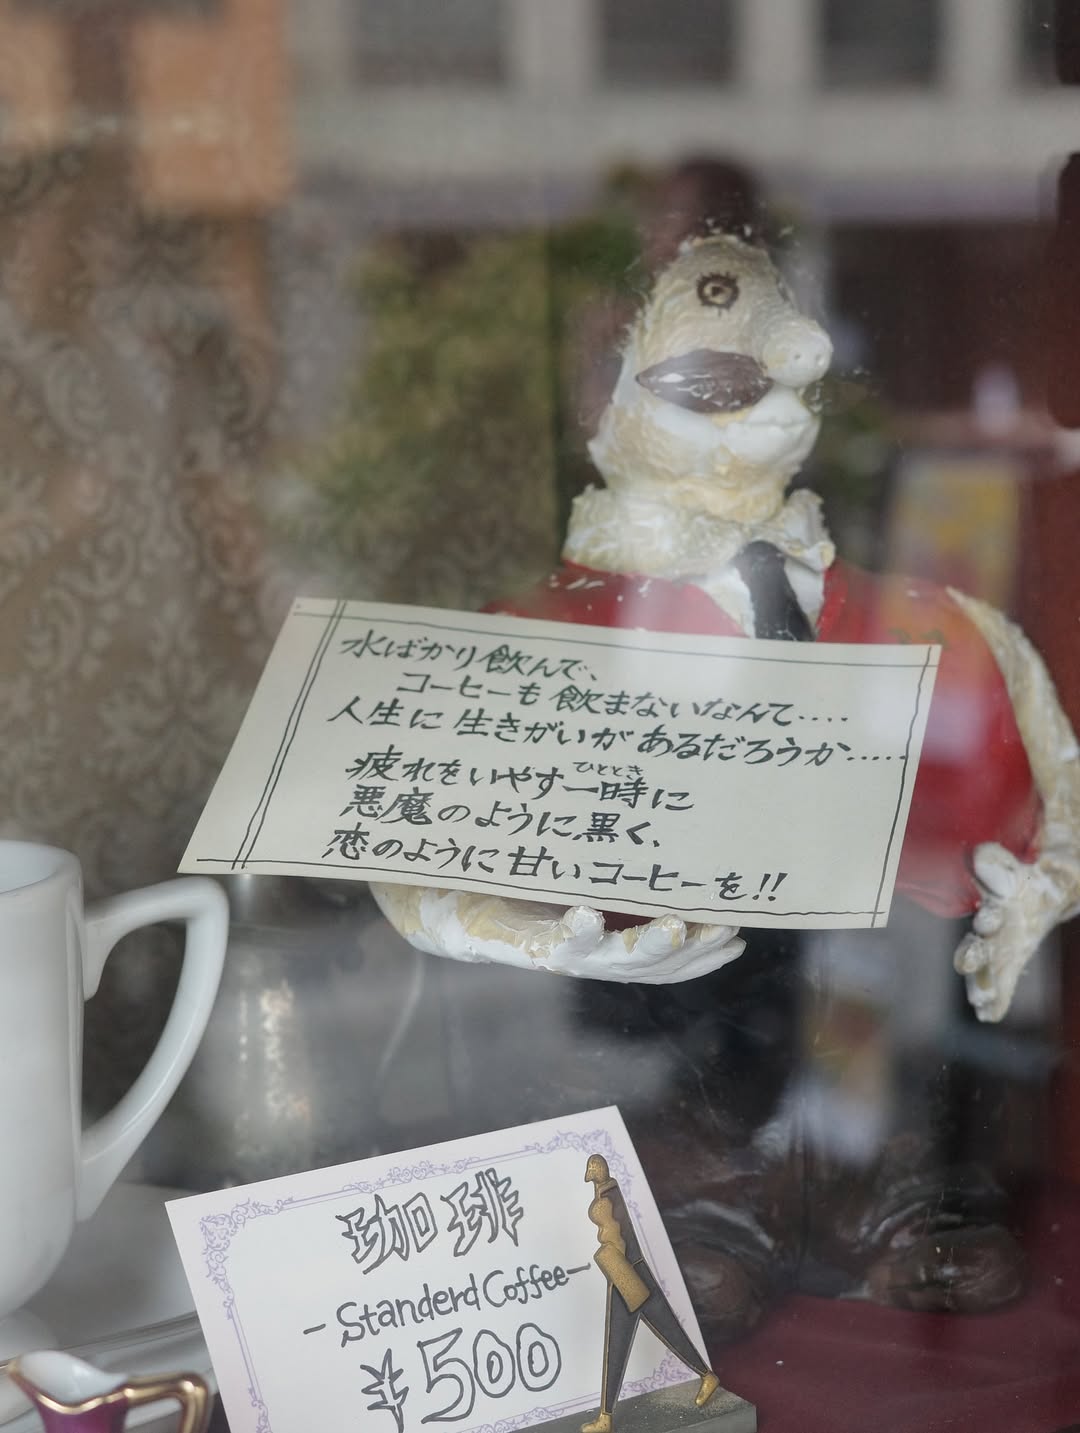 水ばかり飲んで、
コーヒーも飲まないなんて....
人生に生きがいがあるだろうか.....
疲れをいやす一時に
ひととき
悪魔のように黒く、
恋のように甘いコーヒーを!!
珈琲
-Standerd Coffee-
¥500